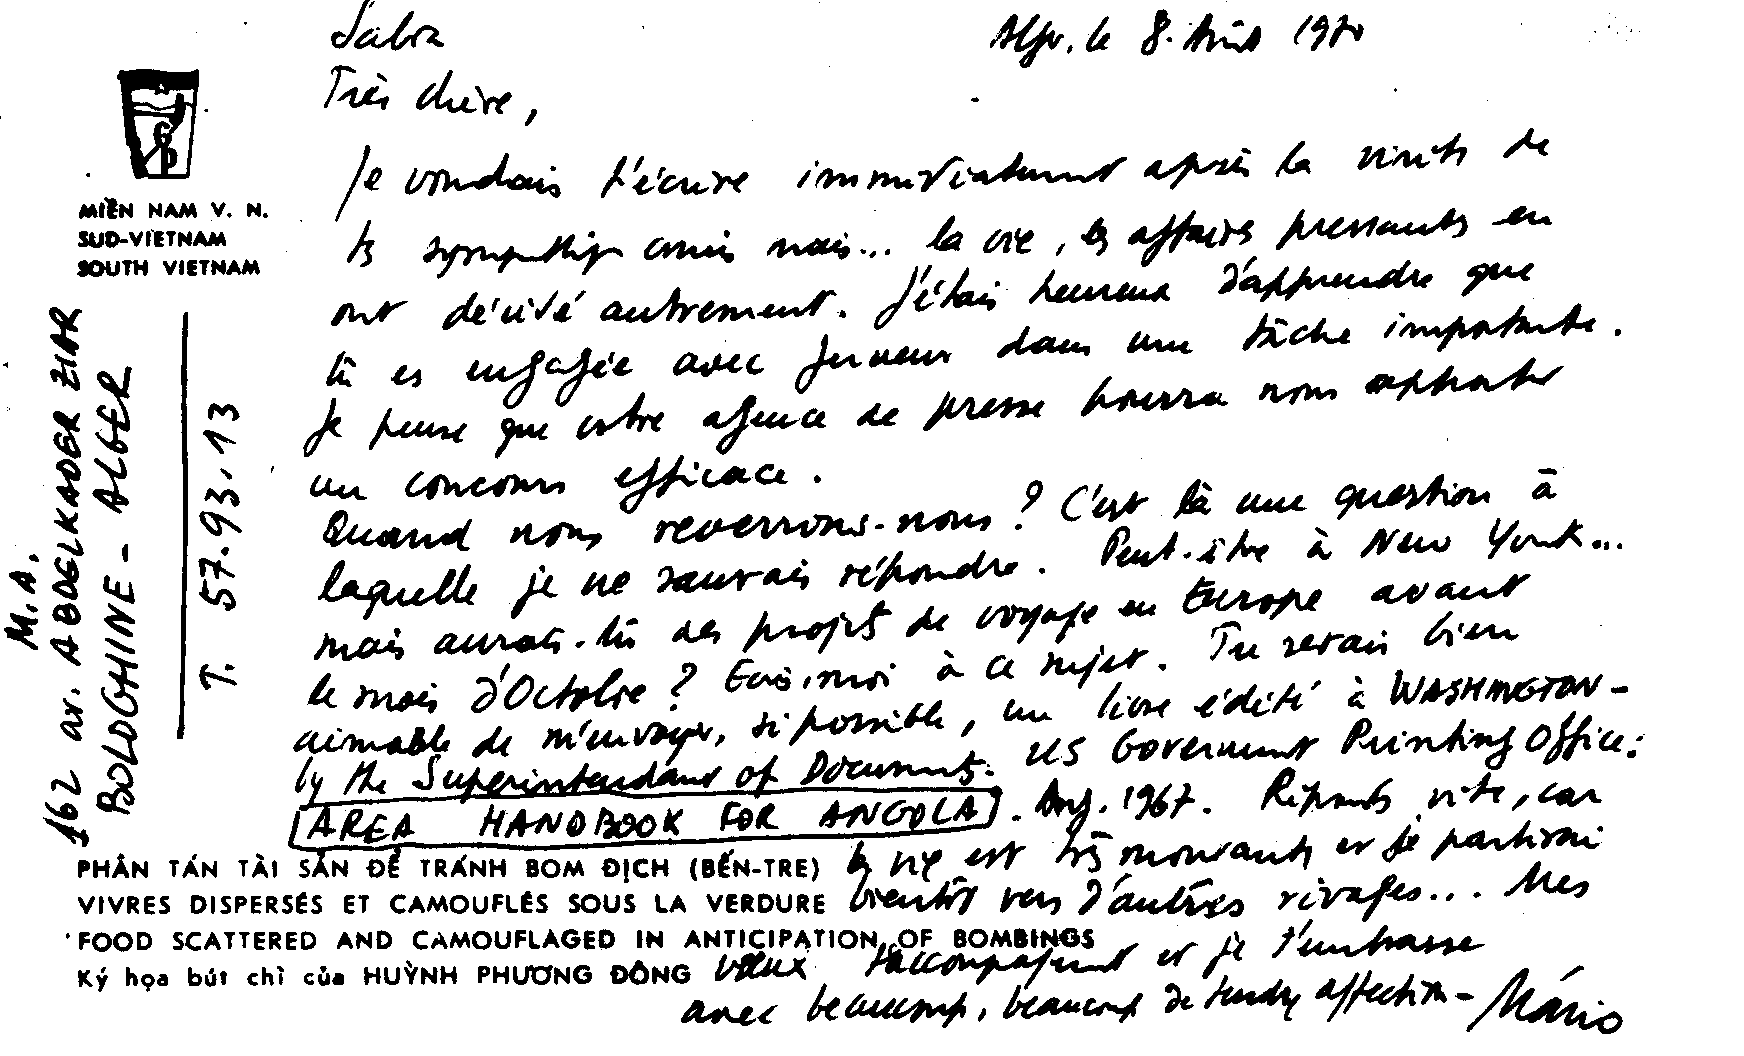 Alger, le 8. Août 1970
Sabra
Très chère,
Je voudrais t'écrire immédiatement après la visite de
tes sympathiq amis mais... la vie, les affaires pressantes en
ont décidé autrement. J'étais heureux d'apprendre que
tu es engagée avec ferveur dans une tâche importante.
Je pense que votre agence de presse pourra nous apporter
un concours efficace.
Quand nous reverrons-nous? C'est là une question à
laquelle je ne saurais répondre. Peut-être à New York...
mais aurais-tu des projets de voyage en Europe avant
le mois d'Octobre? Ecris-moi à ce sujet. Tu serais bien
aimable de m'envoyer, si possible, un livre édité à WASHINGTON-
by the Superintendant of Documents. US Government Printing Office:
AREA HANDBOOK FOR ANGOLA. Aug. 1967. Réponds vite, car
la vie est très mouvante et je partirai
bientôt vers d'autres rivages... Mes
vœux t'accompagnent et je t'embrasse
avec beaucoup, beaucoup de tendre affection - Mário
MIỀN NAM V. N.
SUD-VIETNAM
SOUTH VIETNAM
M.A.
162 av. ABDELKADER ZIAR
BOLOGHINE - ALGER
T. 57.93.13
PHÂN TÁN TÀI SẢN ĐỂ TRÁNH BOM ĐỊCH (BẾN-TRE)
VIVRES DISPERSÉS ET CAMOUFLÉS SOUS LA VERDURE
FOOD SCATTERED AND CAMOUFLAGED IN ANTICIPATION OF BOMBINGS
Ký họa bút chì của HUỲNH PHƯƠNG ĐÔNG